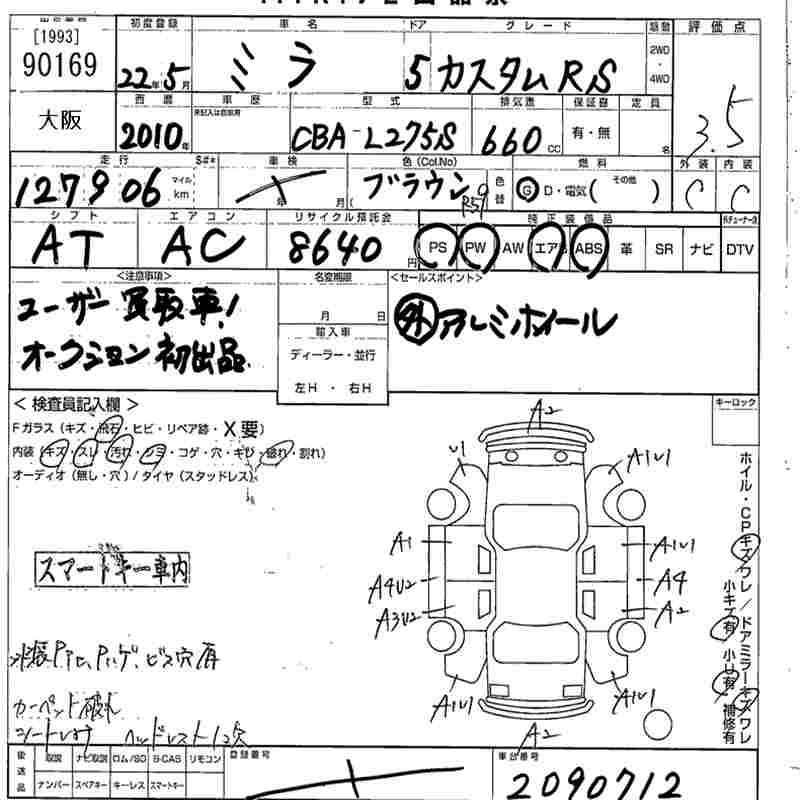 [1993]
90169
大阪
初度登録 車名 ドア グレード 駆動 評価点
22年5月 ミラ 5 カスタム RS 2WD・4WD 3.5
西暦 車歴 型式 排気量 保証書 定員
未記入は自家用
2010年 CBA-L275S 660cc 有・無 名
走行 S#* 車検 色(Col.No) 燃料 外装 内装
127906 マイル km 年 月( ブラウン R59 色替 G D・電気( その他 ) C C
シフト エアコン リサイクル預託金 純正装備品
AT AC 8640円 PS PW AW エア ABS 革 SR ナビ DTV
<注意事項> 名変期限 <セールスポイント>
ユーザー買取車! 月 日 外 アルミホイール
オークション初出品 輸入車
ディーラー・並行
左H ・ 右H
<検査員記入欄> キーロック
Fガラス(キズ・飛石・ヒビ・リペア跡・X要)
内装(キズ・スレ・汚れ・シミ・コゲ・穴・キレ・破れ・割れ)
オーディオ(無し・穴)/タイヤ(スタッドレス)
スマートキー車内
A2
U1 A1U1
A1 A1U1
A4U2 A4
A3U2 A2
A1U1 A1U1
A2
ホイル・CPキズワレ/ドアミラーキズワレ
小キズ有 小U有 補修有
ビス穴有
カーペット破れ
ヘッドレスト1ケ欠
後送品 取説 ナビ取説 ロム/SD B-CAS リモコン 登録番号 車台番号
ナンバー スペアキー キーレス スマートキー 2090712